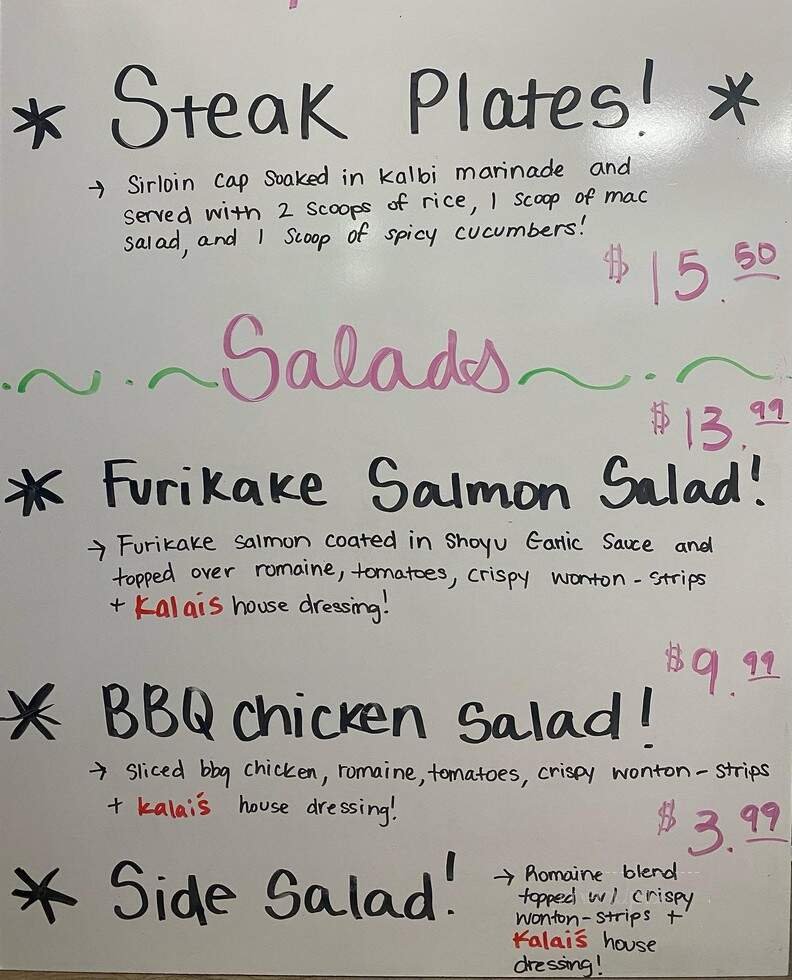 * Steak Plates! *
→ Sirloin cap soaked in kalbi marinade and
served with 2 scoops of rice, 1 scoop of mac
salad, and 1 scoop of spicy cucumbers!
$15.50
Salads
$13.99
* Furikake Salmon Salad!
→ Furikake salmon coated in Shoyu Garlic Sauce and
topped over romaine, tomatoes, crispy wonton-strips
+ Kalai's house dressing!
$9.99
* BBQ chicken Salad!
→ sliced bbq chicken, romaine, tomatoes, crispy wonton-strips
+ kalai's house dressing!
$3.99
* Side Salad!
→ Romaine blend
topped w/ crispy
wonton-strips +
Kalai's house
dressing!